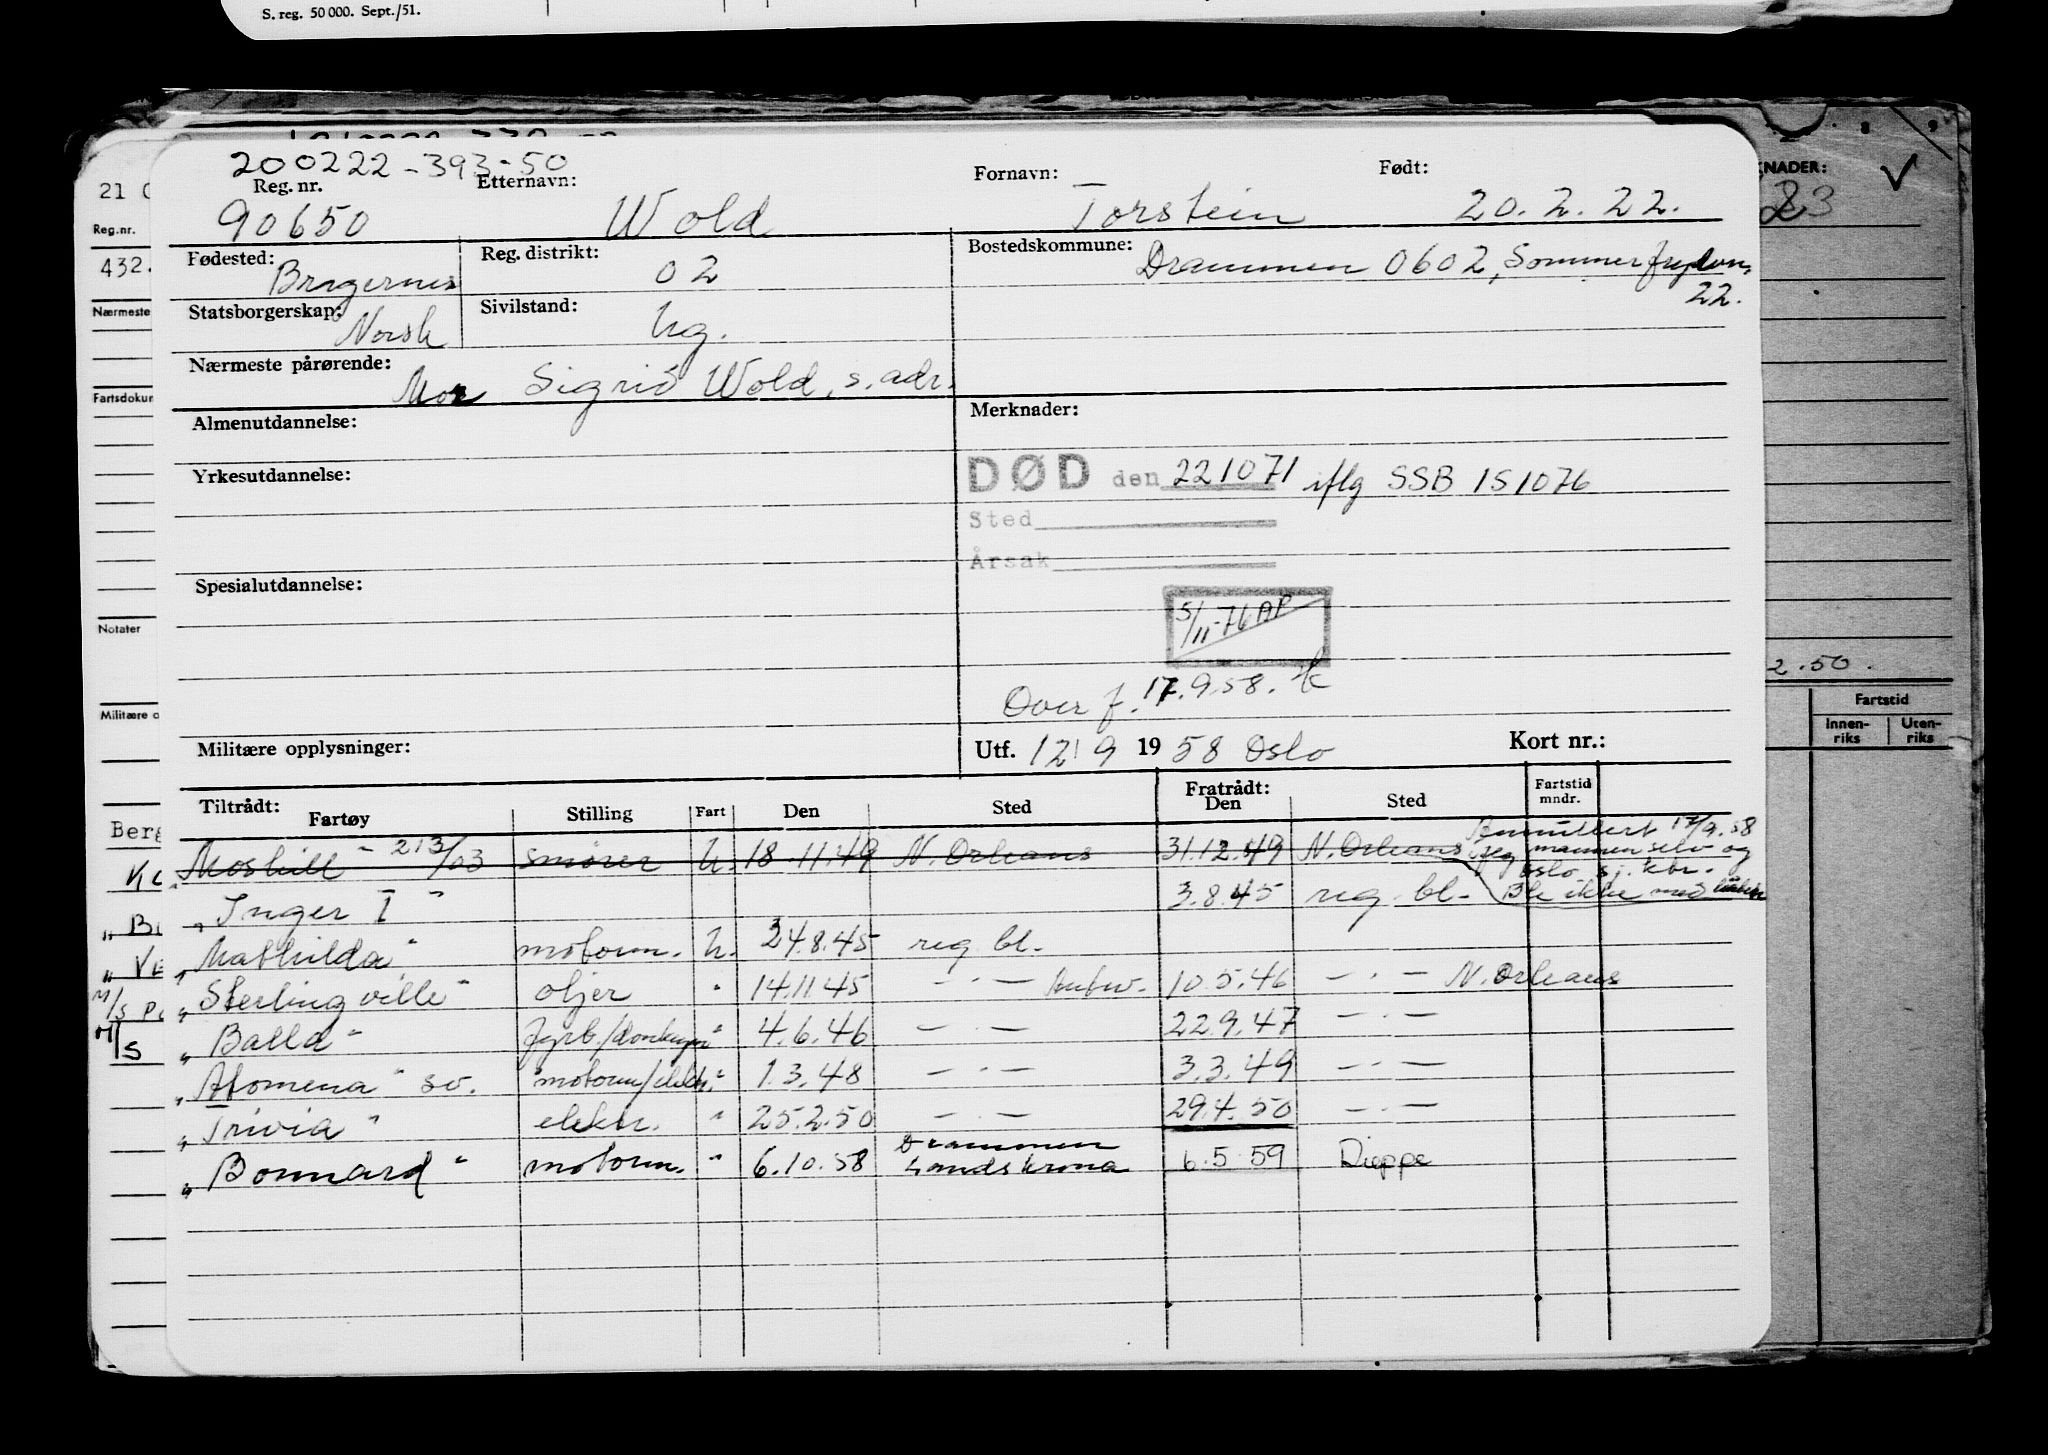 S. reg. 50 000. Sept./51.
200222-393-50
Reg. nr. Etternavn: Fornavn: Født:
90650 Wold Torstein 20.2.22.
Fødested: Bragernes Reg. distrikt: 02 Bostedskommune: Drammen 0602,
22.
Statsborgerskap: Norsk Sivilstand: Ug.
Nærmeste pårørende: Mor Sigrid Wold, s. adr.
Almenutdannelse: Merknader:
Yrkesutdannelse: DØD den 221071 iflg SSB 151076
Sted
Årsak
Spesialutdannelse:
5/11-76 AP
Over f. 17.9.58.
Militære opplysninger: Utf. 12/9 1958 Oslo Kort nr.:
Tiltrådt: Fratrådt: Fartstid
Fartøy Stilling Fart Den Sted Den Sted mndr.
Annullert 17/9.58
Moshill - 213/03 smører U. 18.11.49 N. Orleans 31.12.49 N. Orleans iflg mannen selv og
Oslo sj. ktr.
" Inger I " 3.8.45 reg. bl. Ble ikke med
" Mathilda " motorm. U. 24.8.45 reg. bl.
" Sterlingville " oljer " 14.11.45 — · — Antw. 10.5.46 — · — N. Orleans
" Balla " fyrb./ " 4.6.46 — · — 22.9.47 — · —
" Atomena " sv. motorm/elektr. " 1.3.48 — · — 3.3.49 — · —
" Trivia " elektr. " 25.2.50 — · — 29.4.50 — · —
Drammen
" Bonnard " motorm. " 6.10.58 Landskrona 6.5.59 Dieppe
21
Reg.nr.
432.
Nærmeste
Fartsdokum
Notater
Militære o
Berg
M/S
M/S
8 9
KNADER:
23
2.50.
Fartstid
Innen-riks Uten-riks